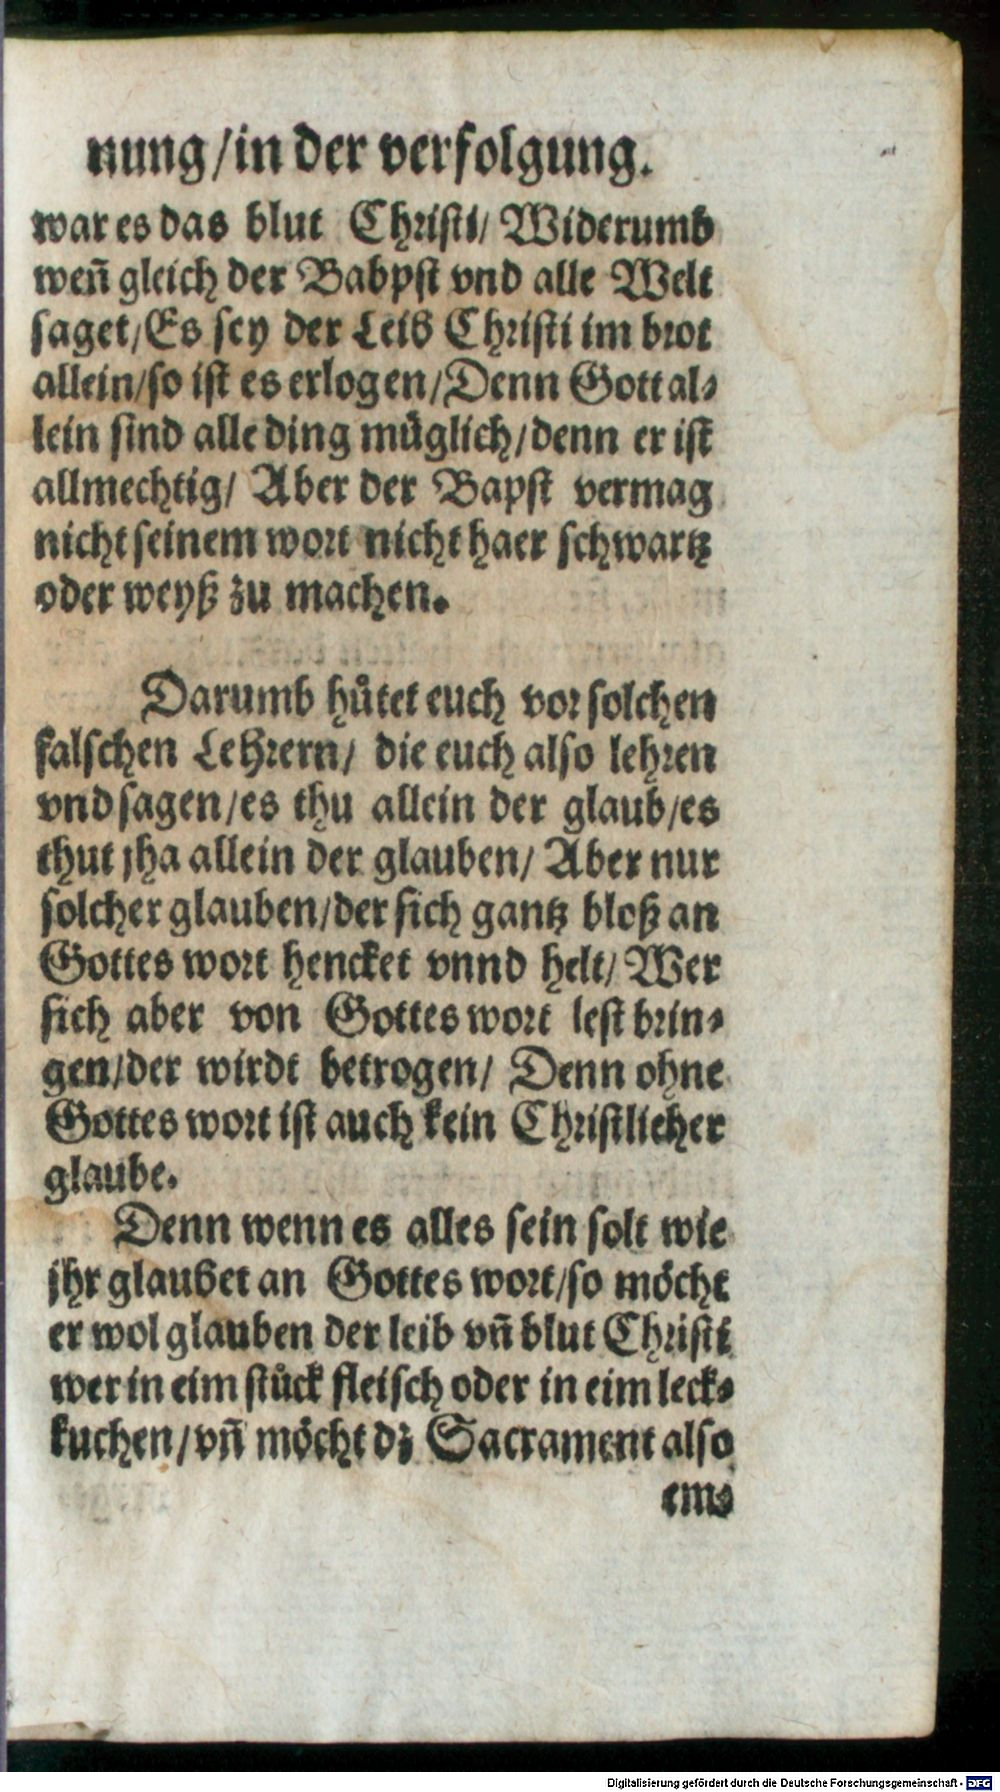 nung/in der verfolgung.
war es das blut Christi/ Widerumb
weñ gleich der Babpst vnd alle Welt
saget/Es sey der Leib Christi im brot
allein/so ist es erlogen/Denn Gott al⸗
lein sind alle ding müglich/denn er ist
allmechtig/ Aber der Bapst vermag
nicht seinem wort nicht haer schwartz
oder weyß zu machen.
Darumb hůtet euch vor solchen
falschen Lehrern/ die euch also lehren
vnd sagen/es thu allein der glaub/es
thut jha allein der glauben/ Aber nur
solcher glauben/der sich gantz bloß an
Gottes wort hencket vnnd helt/ Wer
sich aber von Gottes wort lest brin⸗
gen/der wirdt betrogen/ Denn ohne
Gottes wort ist auch kein Christlicher
glaube.
Denn wenn es alles sein solt wie
jhr glaubet an Gottes wort/so möcht
er wol glauben der leib vñ blut Christi
wer in eim stůck fleisch oder in eim leck⸗
kuchen/vñ möcht dz Sacrament also
em⸗
Digitalisierung gefördert durch die Deutsche Forschungsgemeinschaft - DFG